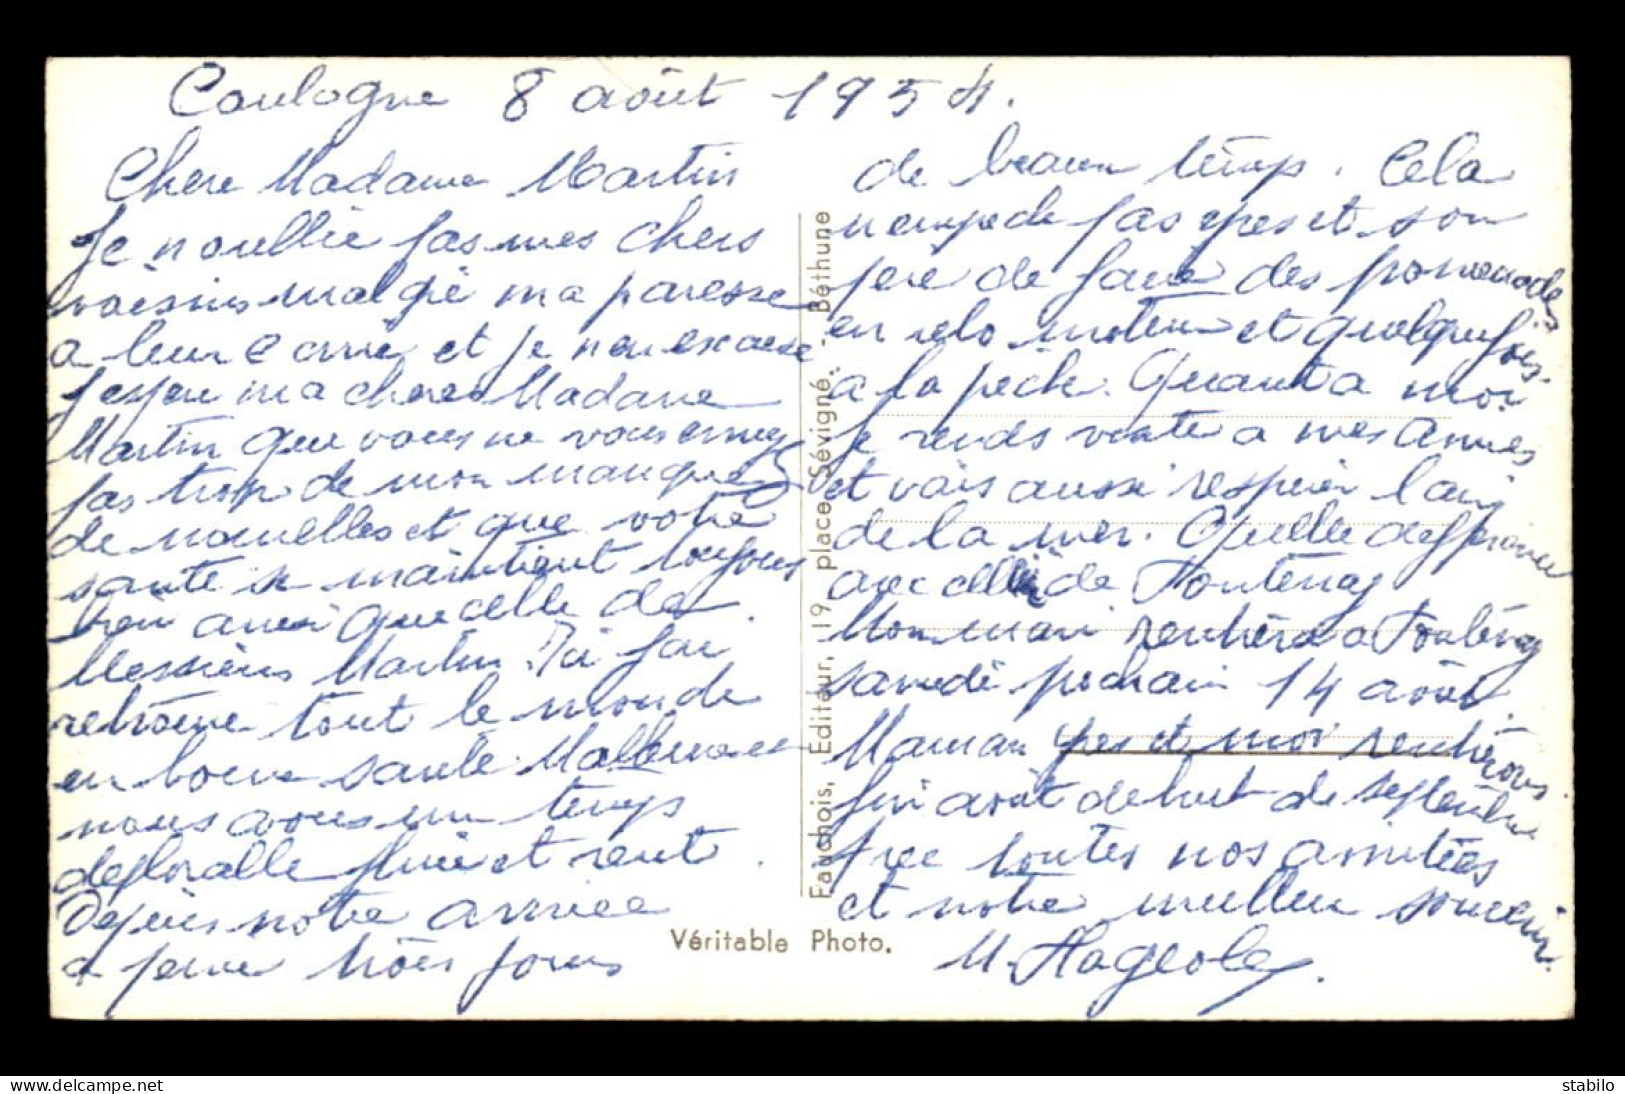 Coulogne 8 août 1954.
Chere Madame Martin
Je n oublie pas mes chers
voisins malgré ma paresse
a leur ecrire, et je m en excuse
J espere ma chere Madame
Martin que vous ne vous ennuyez
pas trop de mon manque
de nouvelles et que votre
santé se maintient toujours
bien ainsi que celle de
Messieurs Martin. Ici jai
retrouve tout le monde
en bonne santé. Malheureusement
nous avons un temps
deplorable pluie et vent.
Depuis notre arrivee
a peine trois jours
de beau temps. Cela
n empeche pas et son
pere de faire des promenades
en velo moteur et quelquefois
a la peche. Quant a moi
je rends visite a mes amies
et vais aussi respirer lair
de la mer. Quelle difference
avec celui de Fontenay
Mon mari rentrera a Fontenay
samedi prochain 14 août.
Maman et moi rentrerons
fin août debut de septembre
Avec toutes nos amitiées
et notre meilleur souvenir.
M.
Fauchois, Editeur, 19, place Sévigné. - Béthune
Véritable Photo.
stabilo